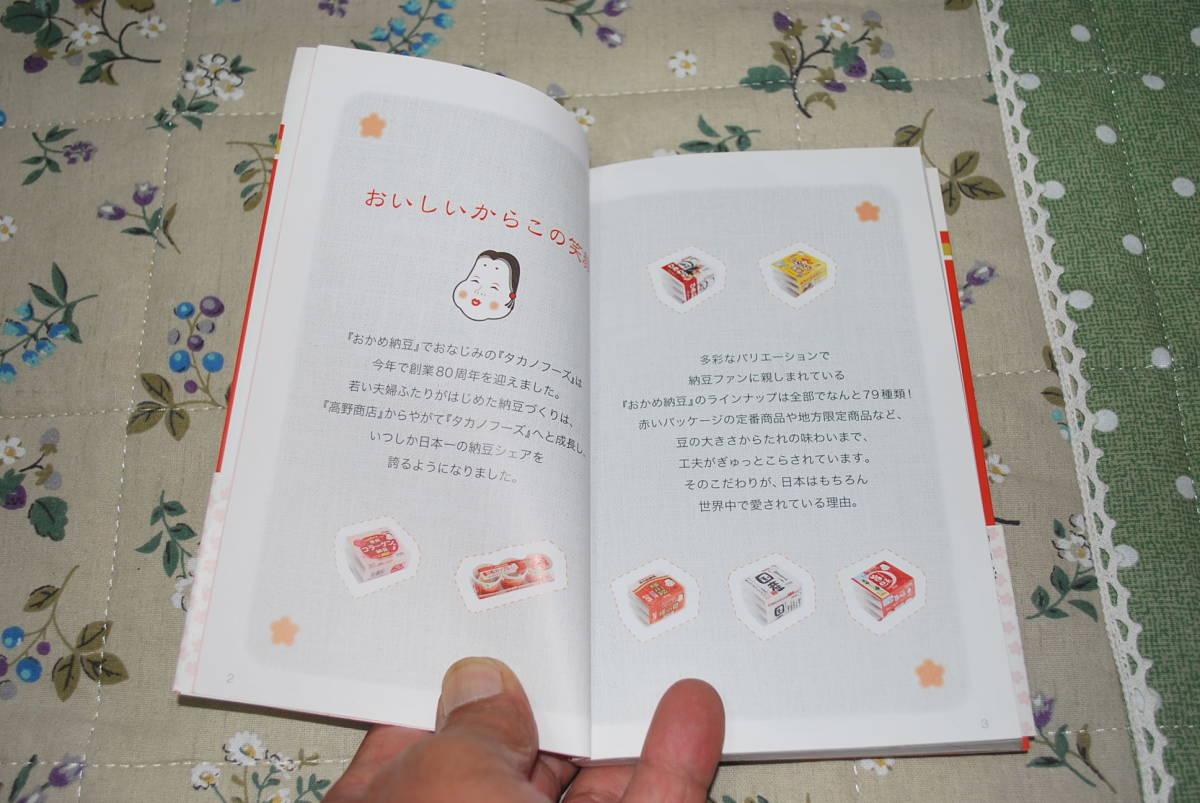 おいしいからこの笑
『おかめ納豆』でおなじみの『タカノフーズ』は
今年で創業80周年を迎えました。
若い夫婦ふたりがはじめた納豆づくりは、
『高野商店』からやがて『タカノフーズ』へと成長し、
いつしか日本一の納豆シェアを
誇るようになりました。
コラーゲン
納豆
2
多彩なバリエーションで
納豆ファンに親しまれている
『おかめ納豆』のラインナップは全部でなんと79種類！
赤いパッケージの定番商品や地方限定商品など、
豆の大きさからたれの味わいまで、
工夫がぎゅっとこらされています。
そのこだわりが、日本はもちろん
世界中で愛されている理由。
3